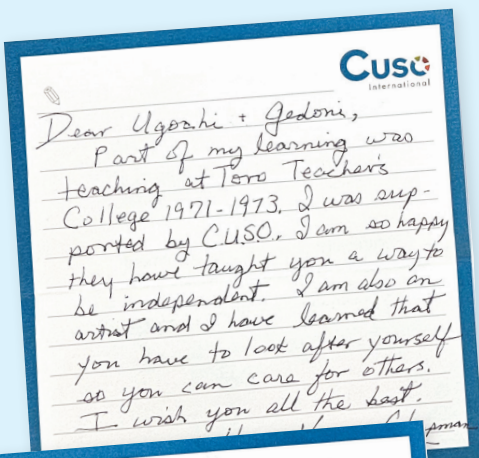 Cuso
International
Dear Ugoshi + Gedoni,
Part of my learning was
teaching at Toro Teacher's
College 1971-1973. I was sup-
ported by C.U.S.O.. I am so happy
they have taught you a way to
be independent. I am also an
artist and I have learned that
you have to look after yourself
so you can care for others.
I wish you all the best.